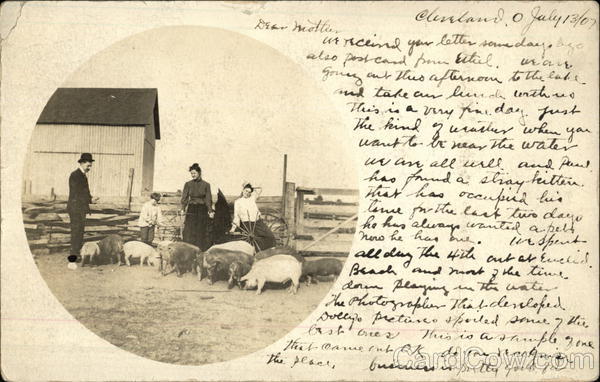 Cleveland, O July 13/07
Dear Mother
We received your letter some days ago
also post card from Ethel. We are
going out this afternoon to the lake
and take our lunch with us
This is a very fine day just
the kind of weather when you
want to be near the water
We are all well and Paul
has found a stray kitten
that has occupied his
time for the last two days
he has always wanted a pet
now he has one. We spent
all day the 4th out at Euclid
Beach and most of the time
down playing in the water
The Photographer that developed
Dolly's pictures spoiled some of the
best ones This is a sample of one
that came out O.K.
the place.
business is pretty good
CardCow.com